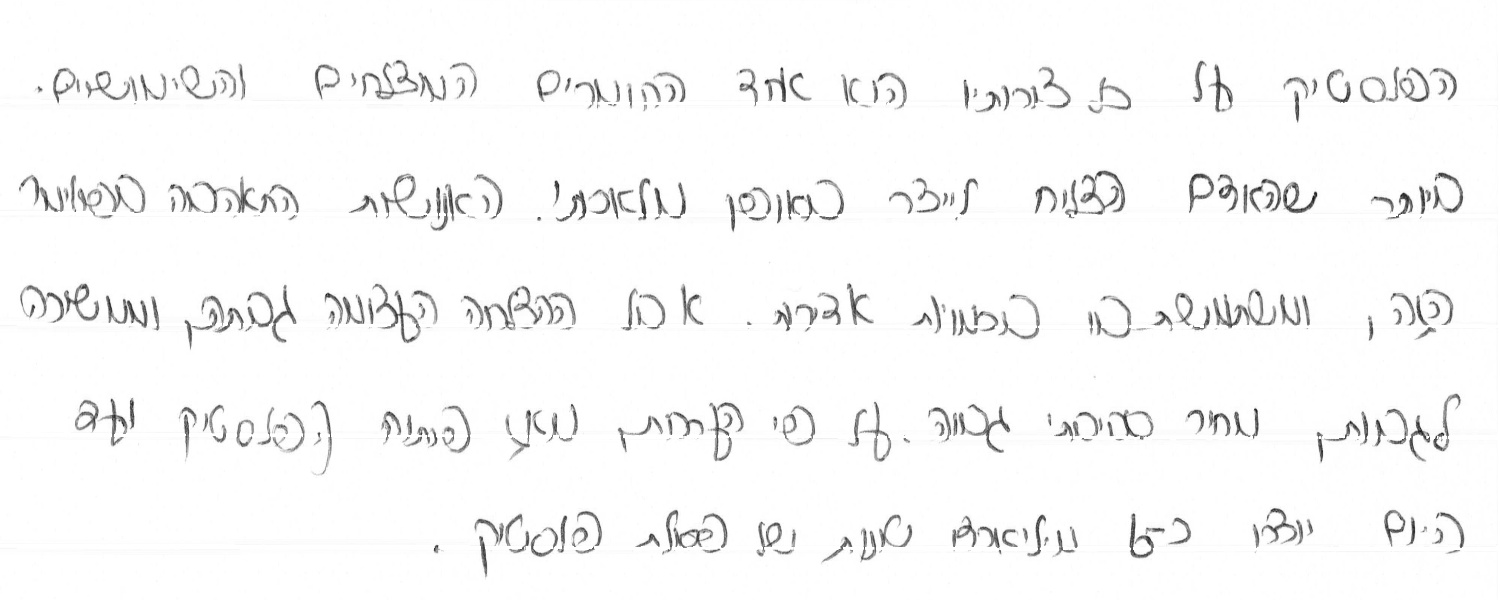 הפלסטיק על כל צורותיו הוא אחד החומרים המוצלחים והשימושיים.
ביותר שהאדם הצליח לייצר באופן מלאכותי. האנושות התאהבה בפולימר
הזה, ומשתמשת בו בכמויות אדירות. אבל ההצלחה העצומה גבתה, וממשיכה
לגבות, מחיר סביבתי גבוה. על פי הערכות, מאז פיתוח הפלסטיק ועד
היום יוצרו כ-6 מיליארד טונות של פסולת פלסטיק.